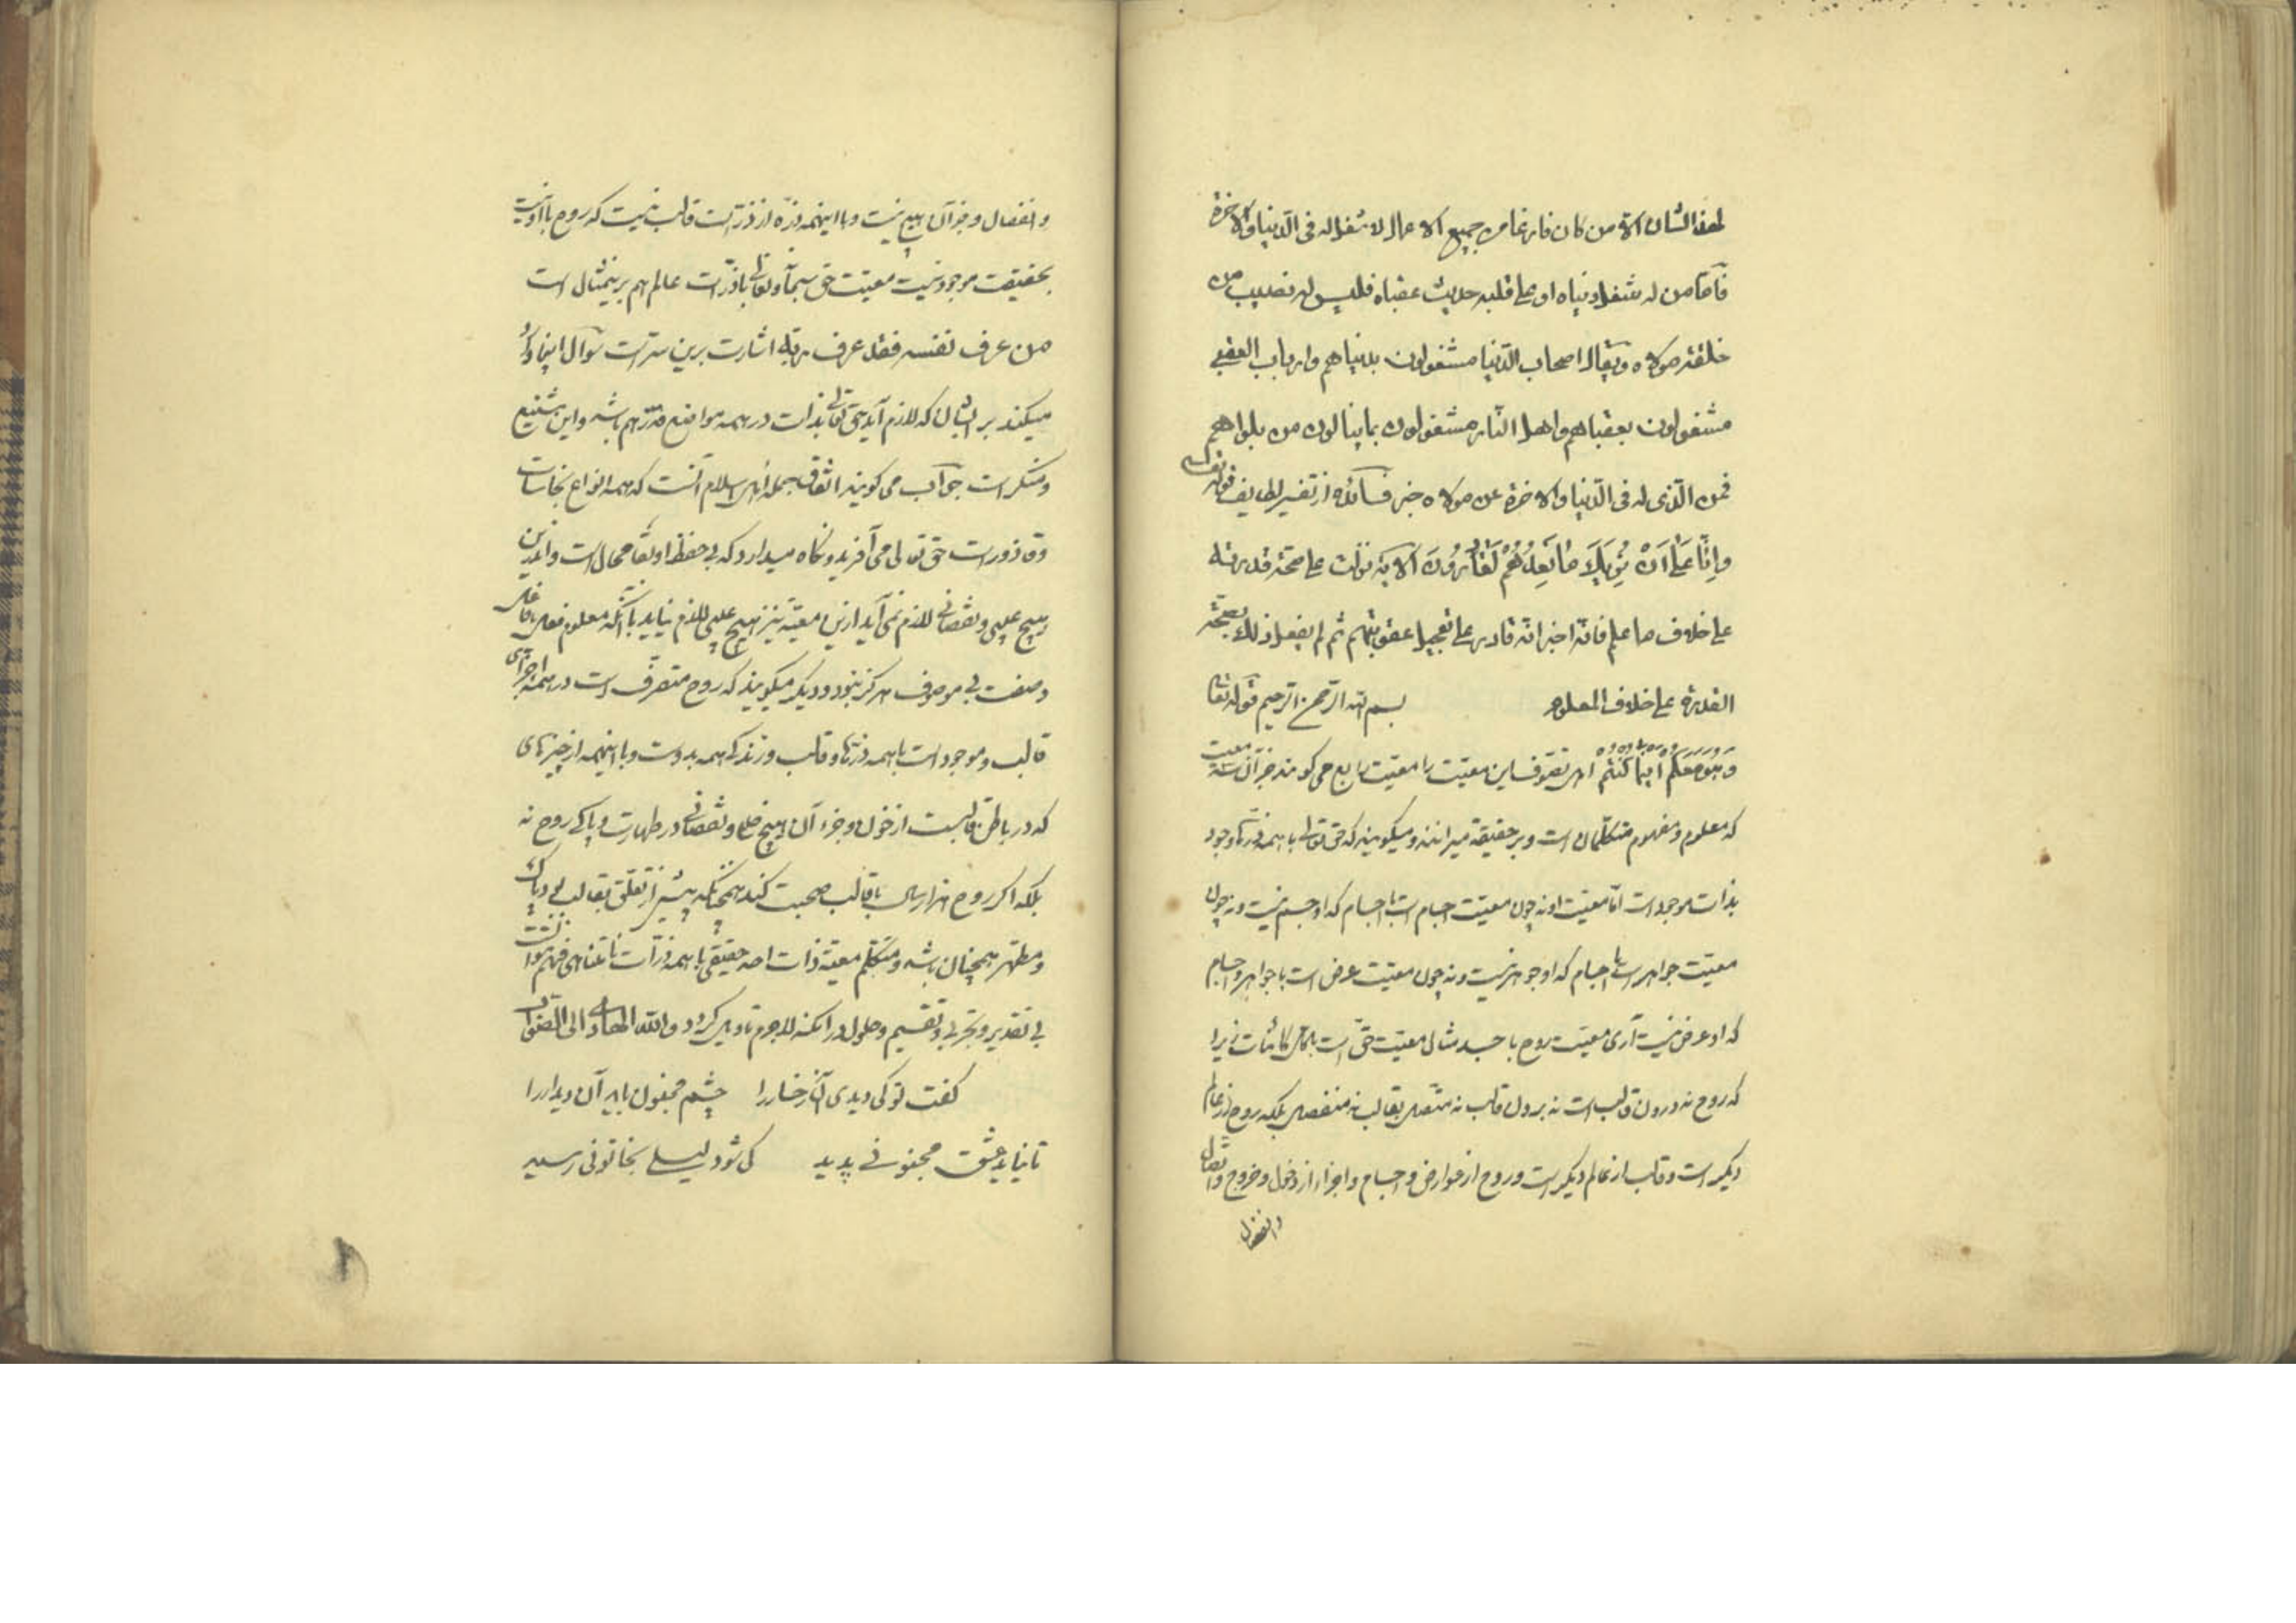 لهذا الشان الا من كان فارغا من جميع الاعمال لا شغل له فى الدنيا والاخرة
فاما من له شغل دنياه او على قلبه حديث عقباه فليس له نصيب من
خلقته مولاه ويقال اصحاب الدنيا مشغولون بدنياهم وارباب العقبى
مشغولون بعقباهم واهل النار مشغولون بما ينالون من بلواهم
فمن الذى له فى الدنيا والاخرة عن مولاه خبر از تفسير لطايف قوله تعالى
وَاِنَّا عَلٰى اَنْ نُرِيَكَ مَا نَعِدُهُمْ لَقَادِرُونَ الاية نزلت على صحة قدرته
على خلاف ما علم فانه اخبر انه قادر على تعجيل عقوبتهم ثم لم يفعل ذلك بصحة
القدرة على خلاف المعلوم بسم الله الرحمن الرحيم قوله تعالى
وَهُوَ مَعَكُمْ اَيْنَمَا كُنْتُمْ اهل تصوف اين معيت را معيت رابع مى كويند جز آن سه معيت
كه معلوم و مفهوم متكلمان است و بر حقيقة ميرانند و ميكويند كه حق تعالى با همه ذرتهاء وجود
بذات موجود است اما معيت او نه چون معيت اجسام است با اجسام كه او جسم نيست و نه چون
معيت جواهر است با اجسام كه او جوهر نيست و نه چون معيت عرض است با جواهر و اجسام
كه او عرض نيست آرى معيت روح با جسد مثال معيت حق است با كل كائنات زيرا
كه روح نه درون قالب است نه برون قالب نه متصل بقالب نه منفصل بلكه روح از عالم
ديكر است و قالب از عالم ديكر است و روح از عوارض و اجسام و اجزاء از دخول و خروج و اتصال
وانفصال
و انفصال و جز آن هيچ نيست و با اينهمه ذره از ذرات قالب نيست كه روح با او نيست
بحقيقت موجود نيست معيت حق سبحانه وتعالى با ذرات عالم هم برينمثال است
من عرف نفسه فقد عرف ربه اشارت برين سر است سوآل اينجا وارد
ميكنند بر ايشان كه لازم آيد كه حق تعالى بذات در همه مواضع قذر هم باشد و اين شنيع
و منكر است جواب مى كويند اتفاق جمله اهل اسلام آنست كه همه انواع نجاسات
و قاذورات حق تعالى مى آفريند و نكاه ميدارد كه بى حفظ او بقا محال است و از اين
هيچ عيبى و نقصانى لازم نمى آيد از اين معيت نيز هيچ عيبى لازم نيايد با آنكه معلوم فعل بى فاعل
و صفت بى موصوف هركز نبود و ديكر ميكويند كه روح متصرف است در همه اجزاى
قالب و موجود است با همه ذرتهاء قالب و زندكى همه بدوست و با اينهمه از چيزهاى
كه در باطن قالبست از خون و جزء آن هيچ خللى و نقصانى در طهارت و پاكى روح نه
بلكه اكر روح هزار سال با قالب صحبت كند همچنانكه پيش از تعلق بقالب بود پاك
و مطهر همچنان باشد و متكلم معية ذات احد حقيقى با همه ذرات نامتناهى فهم نتوانست
بى تقدير و تجزى و تقسيم و حلول در امكنه لاجرم تاويل كرد والله الهادى الى الصواب
كفت تو كى ديدى آن رخسار را چشم مجنون بايد آن ديدار را
تا نيايد عشق مجنونى پديد كى شود ليلى بخاتونى رسيد